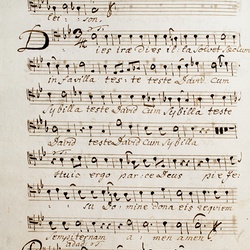 lei- son.
Dies irae Dies illa solvet saeclum
in favilla tes- te teste David cum
Sybilla teste David cum Sybilla teste
David teste David cum Sybilla
Huic ergo parce Deus pie Je-
su Do- mine dona eis requiem
sempiternam a- men amen